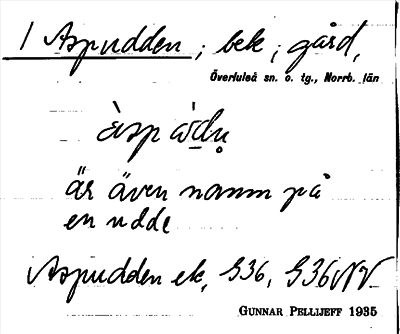 1 Aspudden ; bek ; gård,
Överluleå sn. o. tg., Norrb. län
är även namn på
en udde
Aspudden ek, S36, S36NV
GUNNAR PELLIJEFF 1935